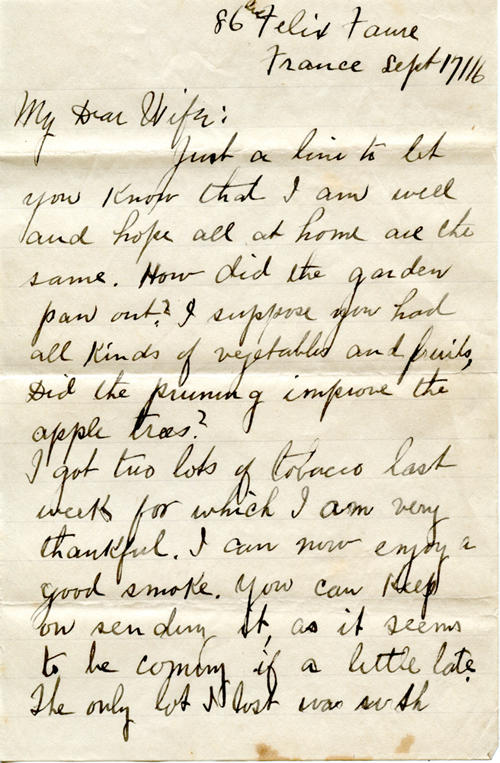 86 Felix Faure
France Sept 17/16
My Dear Wife:
Just a line to let
you know that I am well
and hope all at home are the
same. How did the garden
pan out? I suppose you had
all kinds of vegetables and fruits,
Did the pruning improve the
apple trees?
I got two lots of tobacco last
week for which I am very
thankful. I can now enjoy a
good smoke. You can keep
on sending it, as it seems
to be coming if a little late
The only lot I lost was with